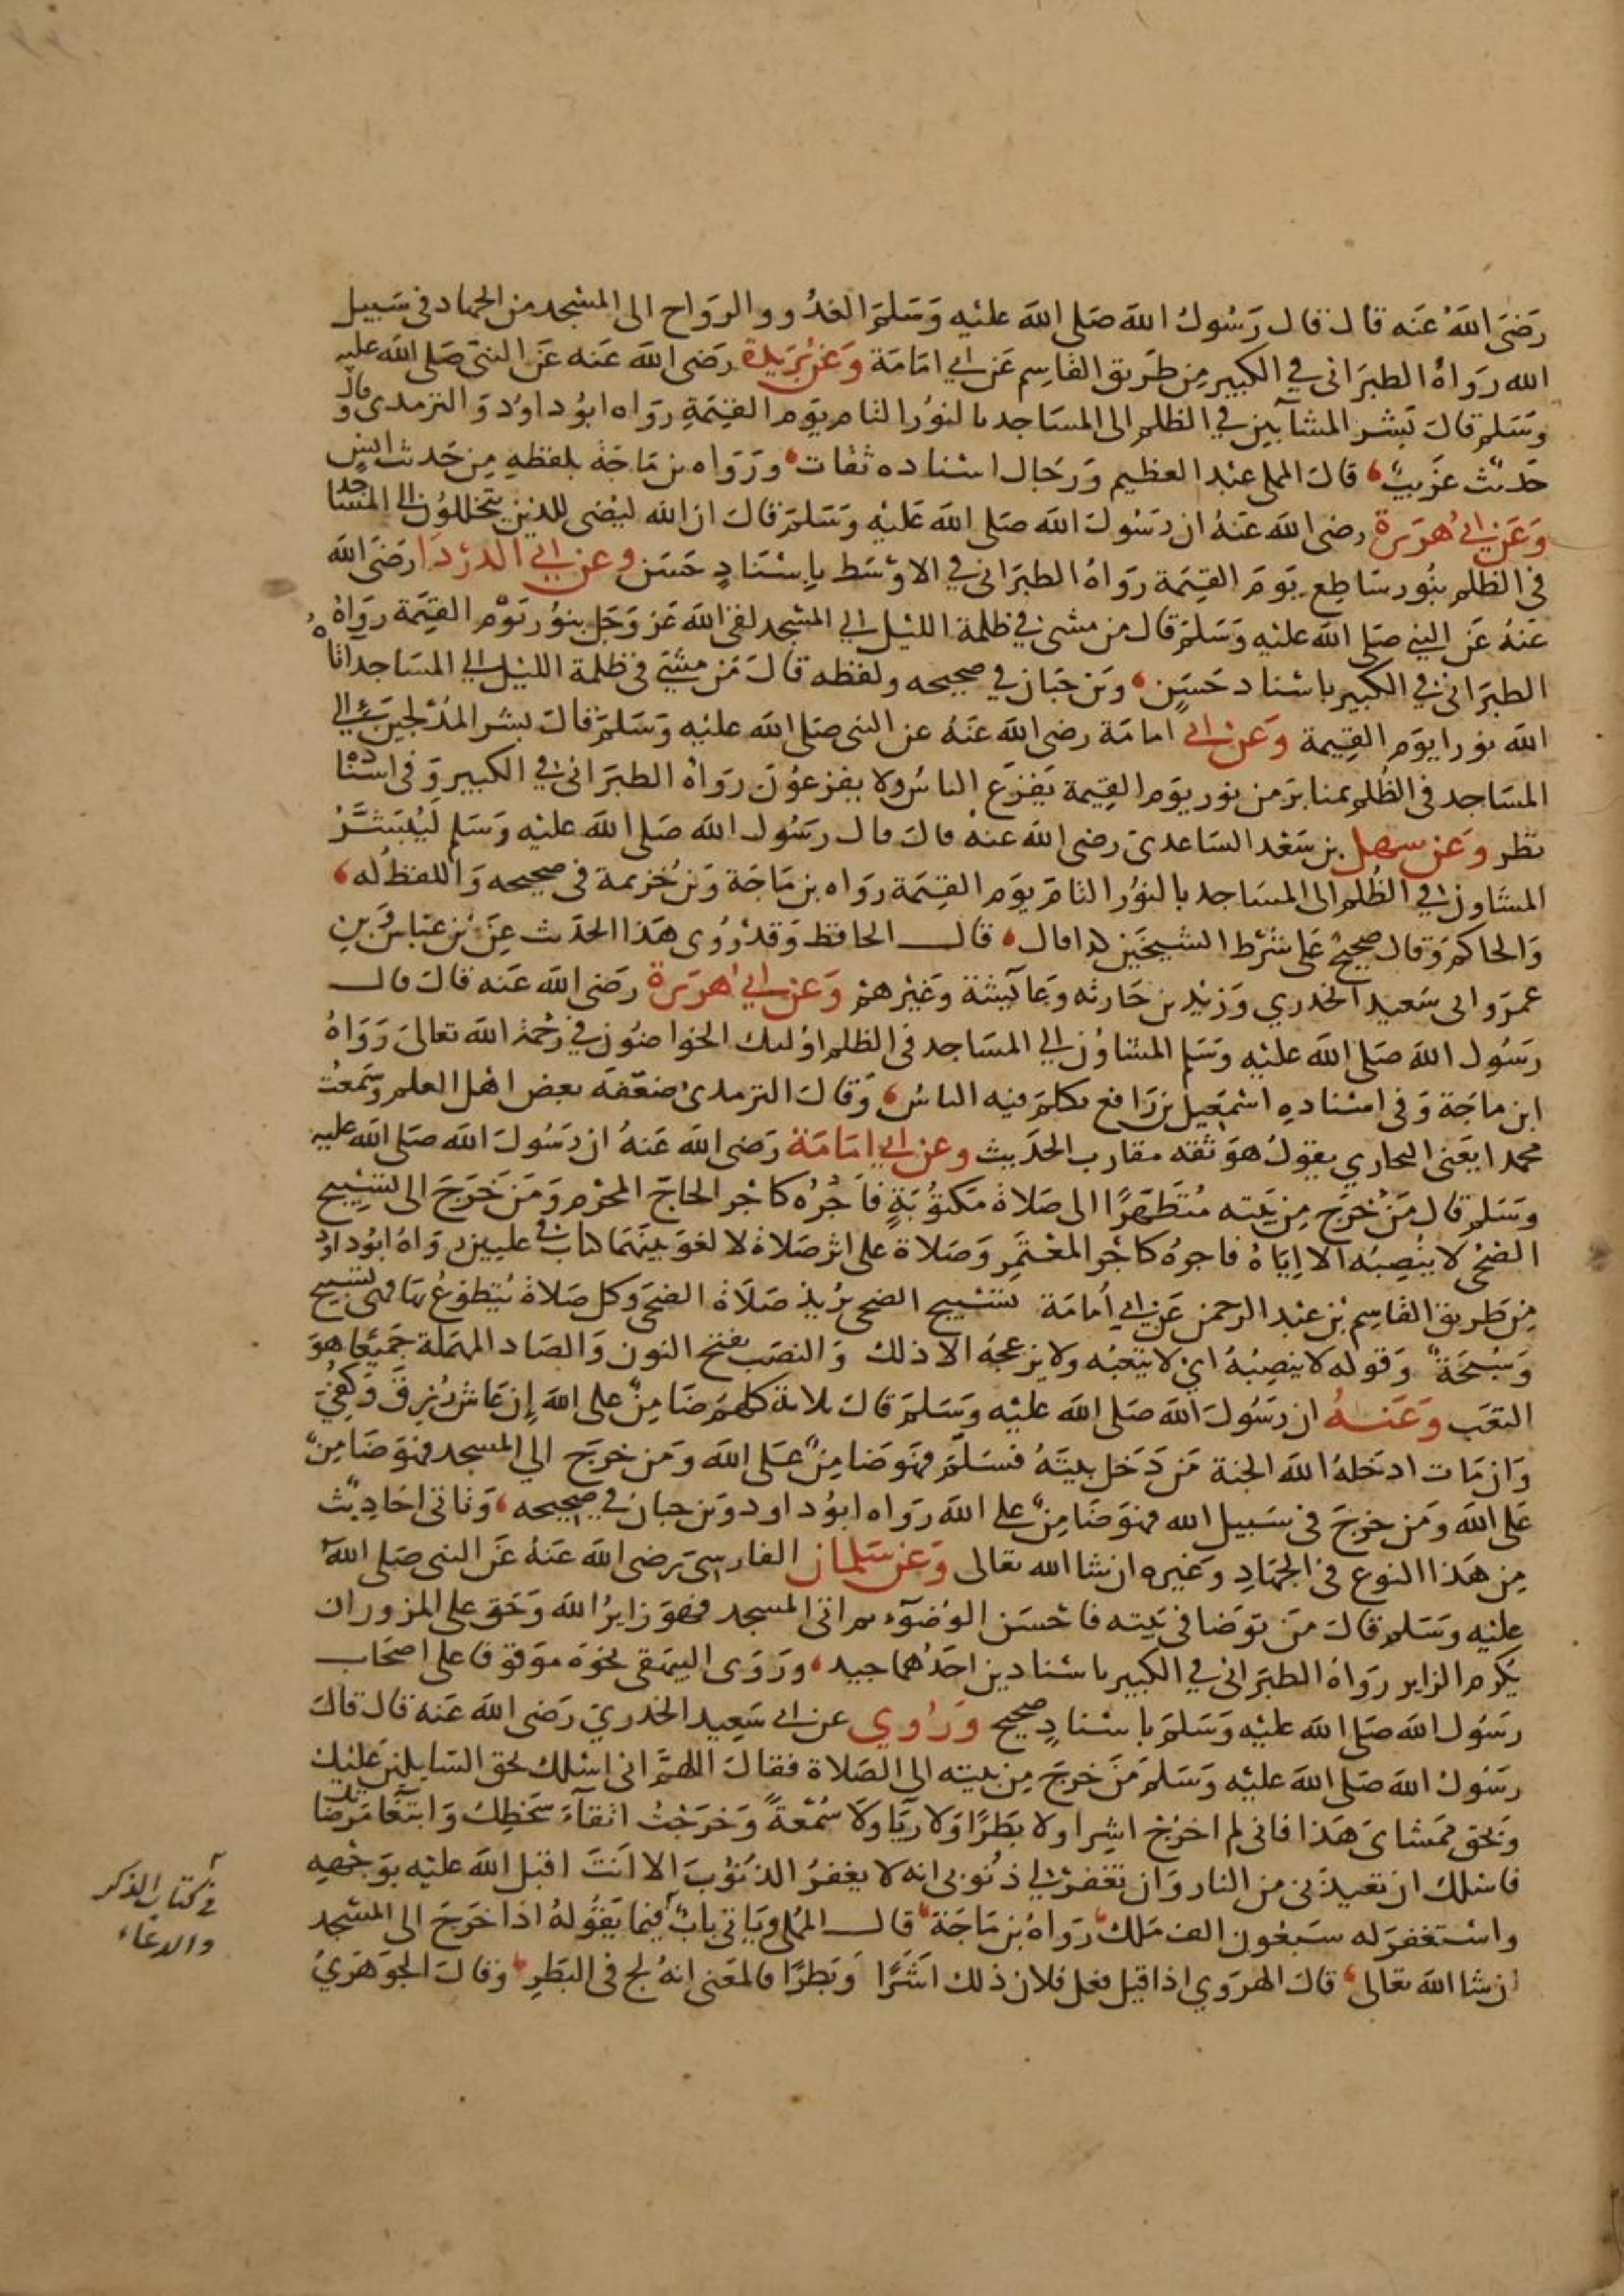 رَضيَ اللهُ عَنه قال قال رَسُولُ الله صَلى الله عليْه وَسَلمَ الغدُو والروَاح الى المسْجد من الجهاد فى سَبيل
الله رَوَاهُ الطبَرَانى في الكبير مِن طَريق القاسِم عَن ابي امَامَة وَعَن بُرَيدة رَضى الله عَنه عَن النبى صَلى الله عليه
وسَلم قال بَشر المشآيين في الظلم الى المسَاجد بالنوُر التام يوَم القيمَةِ روَاه ابوُ داوُد وَالترمدى وقال
حَديث غَريبٌ قال المملى عبْد العظيم وَرجَال اسْناده ثقات ورَوَاه بن مَاجَة بلفظهِ مِن حَدث انسٍ
وَعَن ابي هُرَيرة رضى الله عَنهُ ان رَسُول الله صَلى الله عَليْه وَسَلمَ قال ان الله ليُضى للذين يتخللوُن الي المسَاجد
فى الظلم بنُور سَاطِع يَومَ القيمَة رَوَاهُ الطبَرَانى في الاوْسَط بإسْنَادٍ حَسَن وعن ابي الدرْدَا رَضيَ الله
عَنهُ عَن النبي صَلى الله عليْه وَسَلمَ قال من مشى في ظلمة الليْل الي المسْجد لقى الله عَز وَجَل بنوُر يوْم القيَمة رَوَاهُ
الطبَرانى في الكبير باسْناد حَسَنٍ وبن حَبان في صحيحه ولفظه قال مَن مشيَ فى ظلمة الليْل الي المسَاجد اتاهُ
الله نورا يوَم القِيمة وَعَن ابي امامَة رضى الله عَنهُ عن النبى صَلى الله عليْه وَسَلمَ قال بشر المُدْلجين الي
المسَاجد فى الظُلم بمنابرَ من نور يوَم القِيمة يَفزَع الناسُ ولا يفزعوُن رَوَاهُ الطبَرَانى في الكبير وَفى اسْناده
نظر وعَن سهل بن سَعْد السَاعدى رضى الله عنهُ قال قال رسُول الله صَلى الله عليْه وَسَلم لَيُبَشَّرُ
المشاون في الظُلم الى المسَاجد بالنوُر التامّ يوَم القيَمة روَاه بن مَاجَة وَبن خُزيمة فى صحيحه وَاللفظُ له
وَالحاكم وَقال صحيحٌ عَلى شرْط الشيخَين كدا قال قال الحافظ وَقدْ رُوُى هَذا الحَدث عَن بن عَبَاسٍ وَبن
عمرَ وابى سَعيد الخدري وَزيْد بن حَارثه وعَآيشة وَغيْرهم وَعَن ابي هُرَيرة رَضى الله عَنه قال قال
رسُول الله صَلى الله عليْه وَسَلم المشاوُن الي المسَاجد فى الظلم اوُلىك الخواضوُن في رَحْمة الله تعالىَ رَوَاهُ
ابن ماجَة وَفى اسْنادهِ اسْمَعيل بن رَافع تكلمَ فيه الناسُ وَقال الترمدى ضعّفه بعض اهْل العلم وسَمعْت
محمدا يعَنى البخاري يقوُلُ هوَ ثقه مقارب الحدَيث وعن ابي امَامَة رَضى الله عَنهُ ان رَسُول الله صَلى الله عليه
وسَلم قال مَن خَرج مِن بَيته مُتَطَهرًا الى صَلاة مَكتوُبَةٍ فأجْرُه كاجْر الحاج المحْرم وَمَن خَرَجَ الى تسْبيح
الضحْى لا يُنْصِبُه الا اِيَاهُ فاجرُه كاجْر المعْتَمِر وَصَلاة على اثر صَلاة لا لغوَ بينَهَما كتاب في عليين رَوَاهُ ابوُ داود
مِن طَريق القاسِم بْن عبْد الرحمن عَن ابي أُمامَة تسْبيح الضحى يُريدُ صَلَاة الضحَى وَكل صَلاة يُتطوَعُ بهَا فهى تسْبيح
وَسُبْحَة وَقوله لا ينصِبُهُ اي لا يتعبُه ولا يزعجُهُ الا ذلك وَالنصَب بفتح النون وَالصَاد المهمَلة جَميعًا هوَ
التعَب وَعَنهُ ان رَسُول الله صَلى الله عليْه وَسَلمَ قال ثلاثة كلهم ضَامِنٌ على الله إن عَاش رُزِقَ وَكُفِىَ
وَان مَات ادخَلهُ الله الجنة مَن دَخَل بيتَهُ فسَلمَ فهوَ ضَامِنٌ عَلى الله وَمَن خرَج الي المسجد فهوَ ضَامِنٌ
عَلى الله وَمَن خرجَ فى سَبيل الله فهوَ ضَامِنٌ على الله رَوَاه ابوُ داود وَبن حبان في صحيحه وَتاتى احَاديْث
مِن هَذا النوع فى الجهَادِ وَغيره ان شا الله تعالى وَعَن سَلمان الفارسىّ رضى الله عَنهُ عَن النبى صَلى الله
عليْه وسَلم قال مَن توَضا فى بَيته فاحْسَن الوُضوُء ثم اتى المسجد فهوَ زايرُ الله وَحَق على المزور ان
يكرم الزاير رَوَاهُ الطبَرَانى في الكبير باسْنادين احَدُهما جيد ورَوَى البيهقى نحوَهُ موَقوفا على اصحَاب
رسُول الله صَلى الله عليْه وَسَلمَ باسْنادٍ صحيح وَرُوي عن ابي سَعِيد الخدريّ رَضى الله عَنه قال قال
رسَوُل الله صَلى الله عليْه وسَلمَ مَن خرجَ مِن بيته الى الصَلاة فقال اللهمّ انى اسْلك بحق السَايلين عَليْك
وَبحق ممشاىَ هَذا فانى لم اخرُجْ اشِرا ولا بَطَرًا وَلا ريَا ولَا سُمْعَةً وَخرَجْتُ اتقآءَ سخَطِك وَابتغَا مَرضَاتك
فاسْلك ان تعيذَنى من النار وَان تغفرَ لي ذنوُبى انه لا يغفرُ الذنوُب الا انتَ اقبَل الله عليْه بوَجْههِ
واسْتغفرَ له سَبعُون الف مَلك رَوَاهُ بن مَاجَة قال المُملى وَيَاتى بابٌ فيما يقوُلهُ اذا خرَجَ الى المسْجد
ان شا الله تعالى قال الهروَي اذا قيل فعل فلان ذلك أشَرًا وَبَطرًا فالمعَنى انهُ لج فى البَطرِ وَقال الجوَهرَيُ
في كتاب الذكر
والدعاء